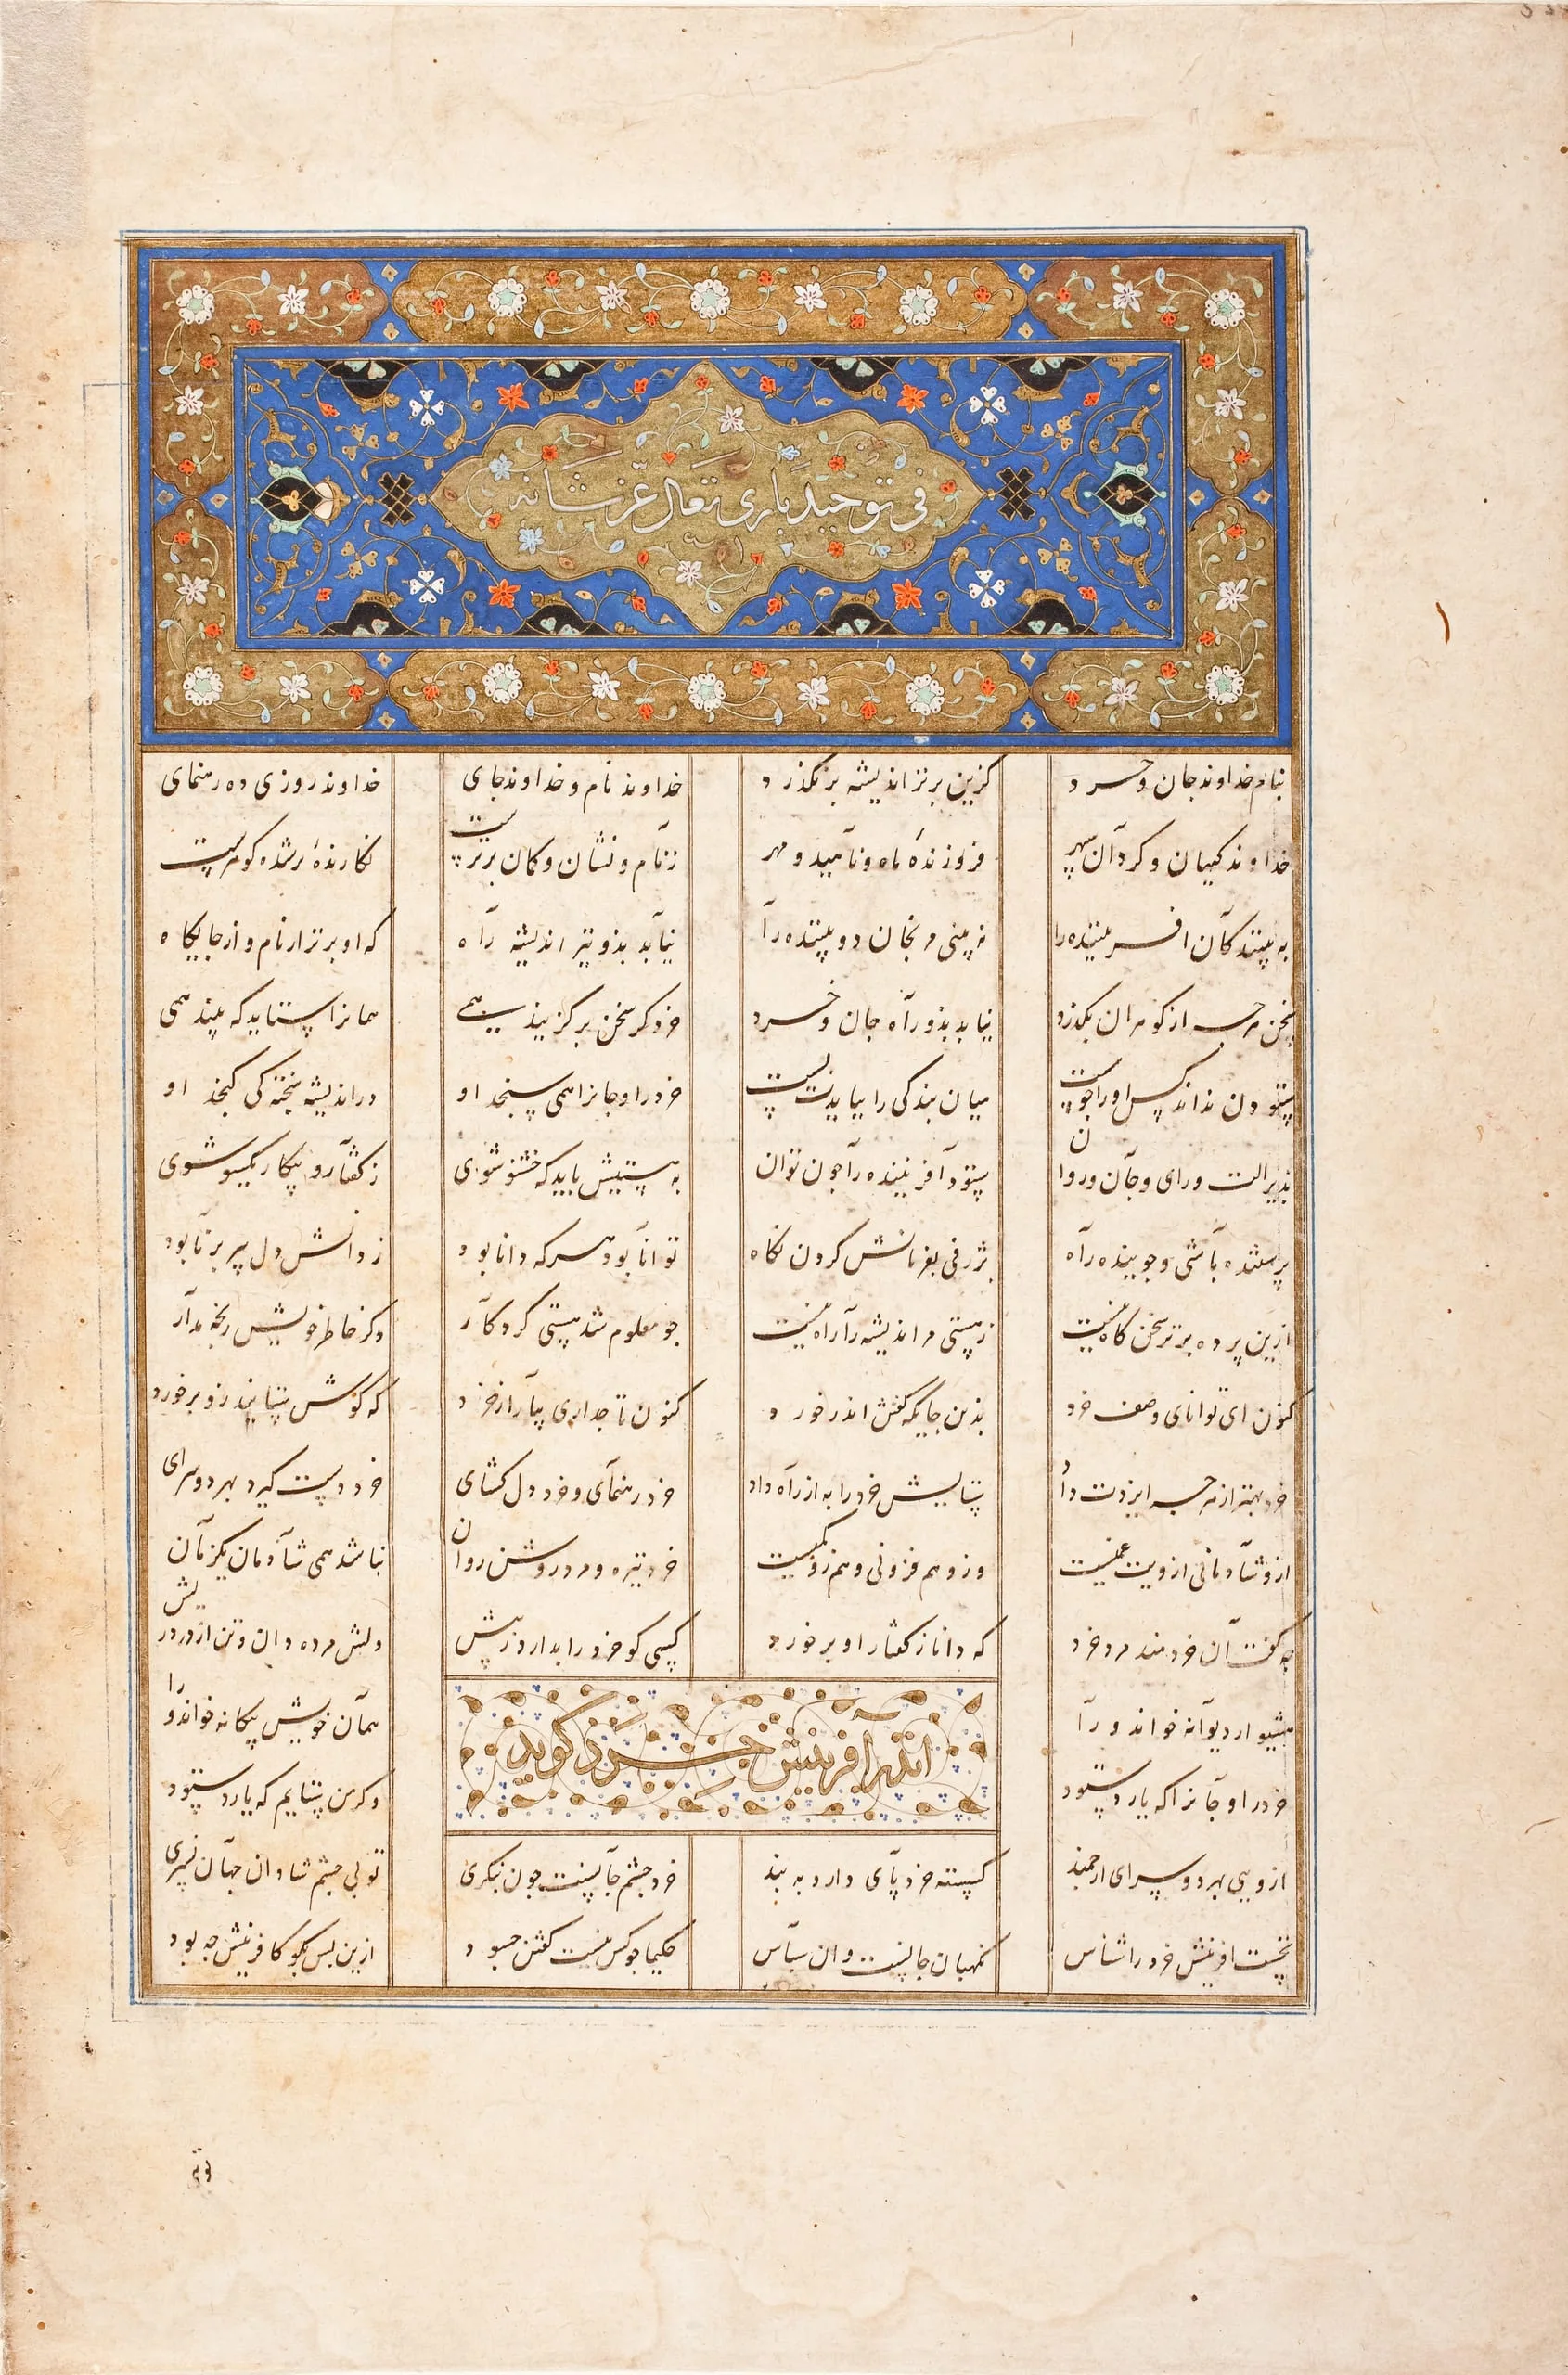 فی توحید باری تعالی عز شانه
بنام خداوند جان و خرد کزین برتر اندیشه بر نکذرد خداوند نام و خداوند جای خداوند روزی ده رهنمای
خداوند کیهان و کردان سپهر فروزندهٔ ماه و ناهید و مهر ز نام و نشان و کمان برترست نکارندهٔ بر شده کوهرست
به بینندکان افریننده را نه بینی مرنجان دو بیننده را نیابد بدو نیز اندیشه راه که او برتر از نام و از جایکاه
سخن هرچه از کوهران بکذرد نیابد بدو راه جان و خرد خرد کر سخن برکزیند همی همانرا ستاید که بیند همی
ستودن نداند کس اورا چو هست میان بندکی را ببایدت بست خرد را و جانرا همی سنجد او در اندیشه سخته کی کنجد او
بدین الت و رای و جان و روان ستود آفریننده را چون توان به هستیش باید که خستو شوی ز کفتار و پیکار یکسو شوی
پرستنده باشی و جوینده راه بژرفی بفرمانش کردن نکاه توانا بود هر که دانا بود ز دانش دل پیر برنا بود
ازین پرده برتر سخن کاه نیست ز هستی مر اندیشه را راه نیست چو معلوم شد هستی کردکار دکر خاطر خویش رنجه مدار
کنون ای توانای وصف خرد بدین جایکه کفتن اندر خورد کنون تا چه داری بیار از خرد که کوش ستاینده زو برخورد
خرد بهتر از هرچه ایزدت داد ستایش خرد را به از راه داد خرد رهنمای و خرد دل کشای خرد دست کیرد بهر دو سرای
ازو شادمانی ازویت غمیست وزو هم فزونی و هم زو کمیست خرد تیره و مرد روشن روان نباشد همی شادمان یکزمان
چه کفت آن خردمند مرد خرد که دانا ز کفتار او برخورد کسی کو خرد را ندارد ز پیش دلش مرده دان و تن از درد ریش
هشیوار دیوانه خواند ورا همان خویش بیکانه خواند ورا
اندر آفرینش خرد کوید
خرد را و جانرا که یارد ستود و کر من ستایم که یارد ستود
ازویی بهر دو سرای ارجمند کسسته خرد پای دارد به بند خرد چشم جانست چون بنکری تو بی چشم شادان جهان نسپری
نخست افرینش خرد را شناس نکهبان جانست و ان سپاس حکیما چو کس نیست کفتن چه سود ازین پس بکو کافرینش چه بود
توئی